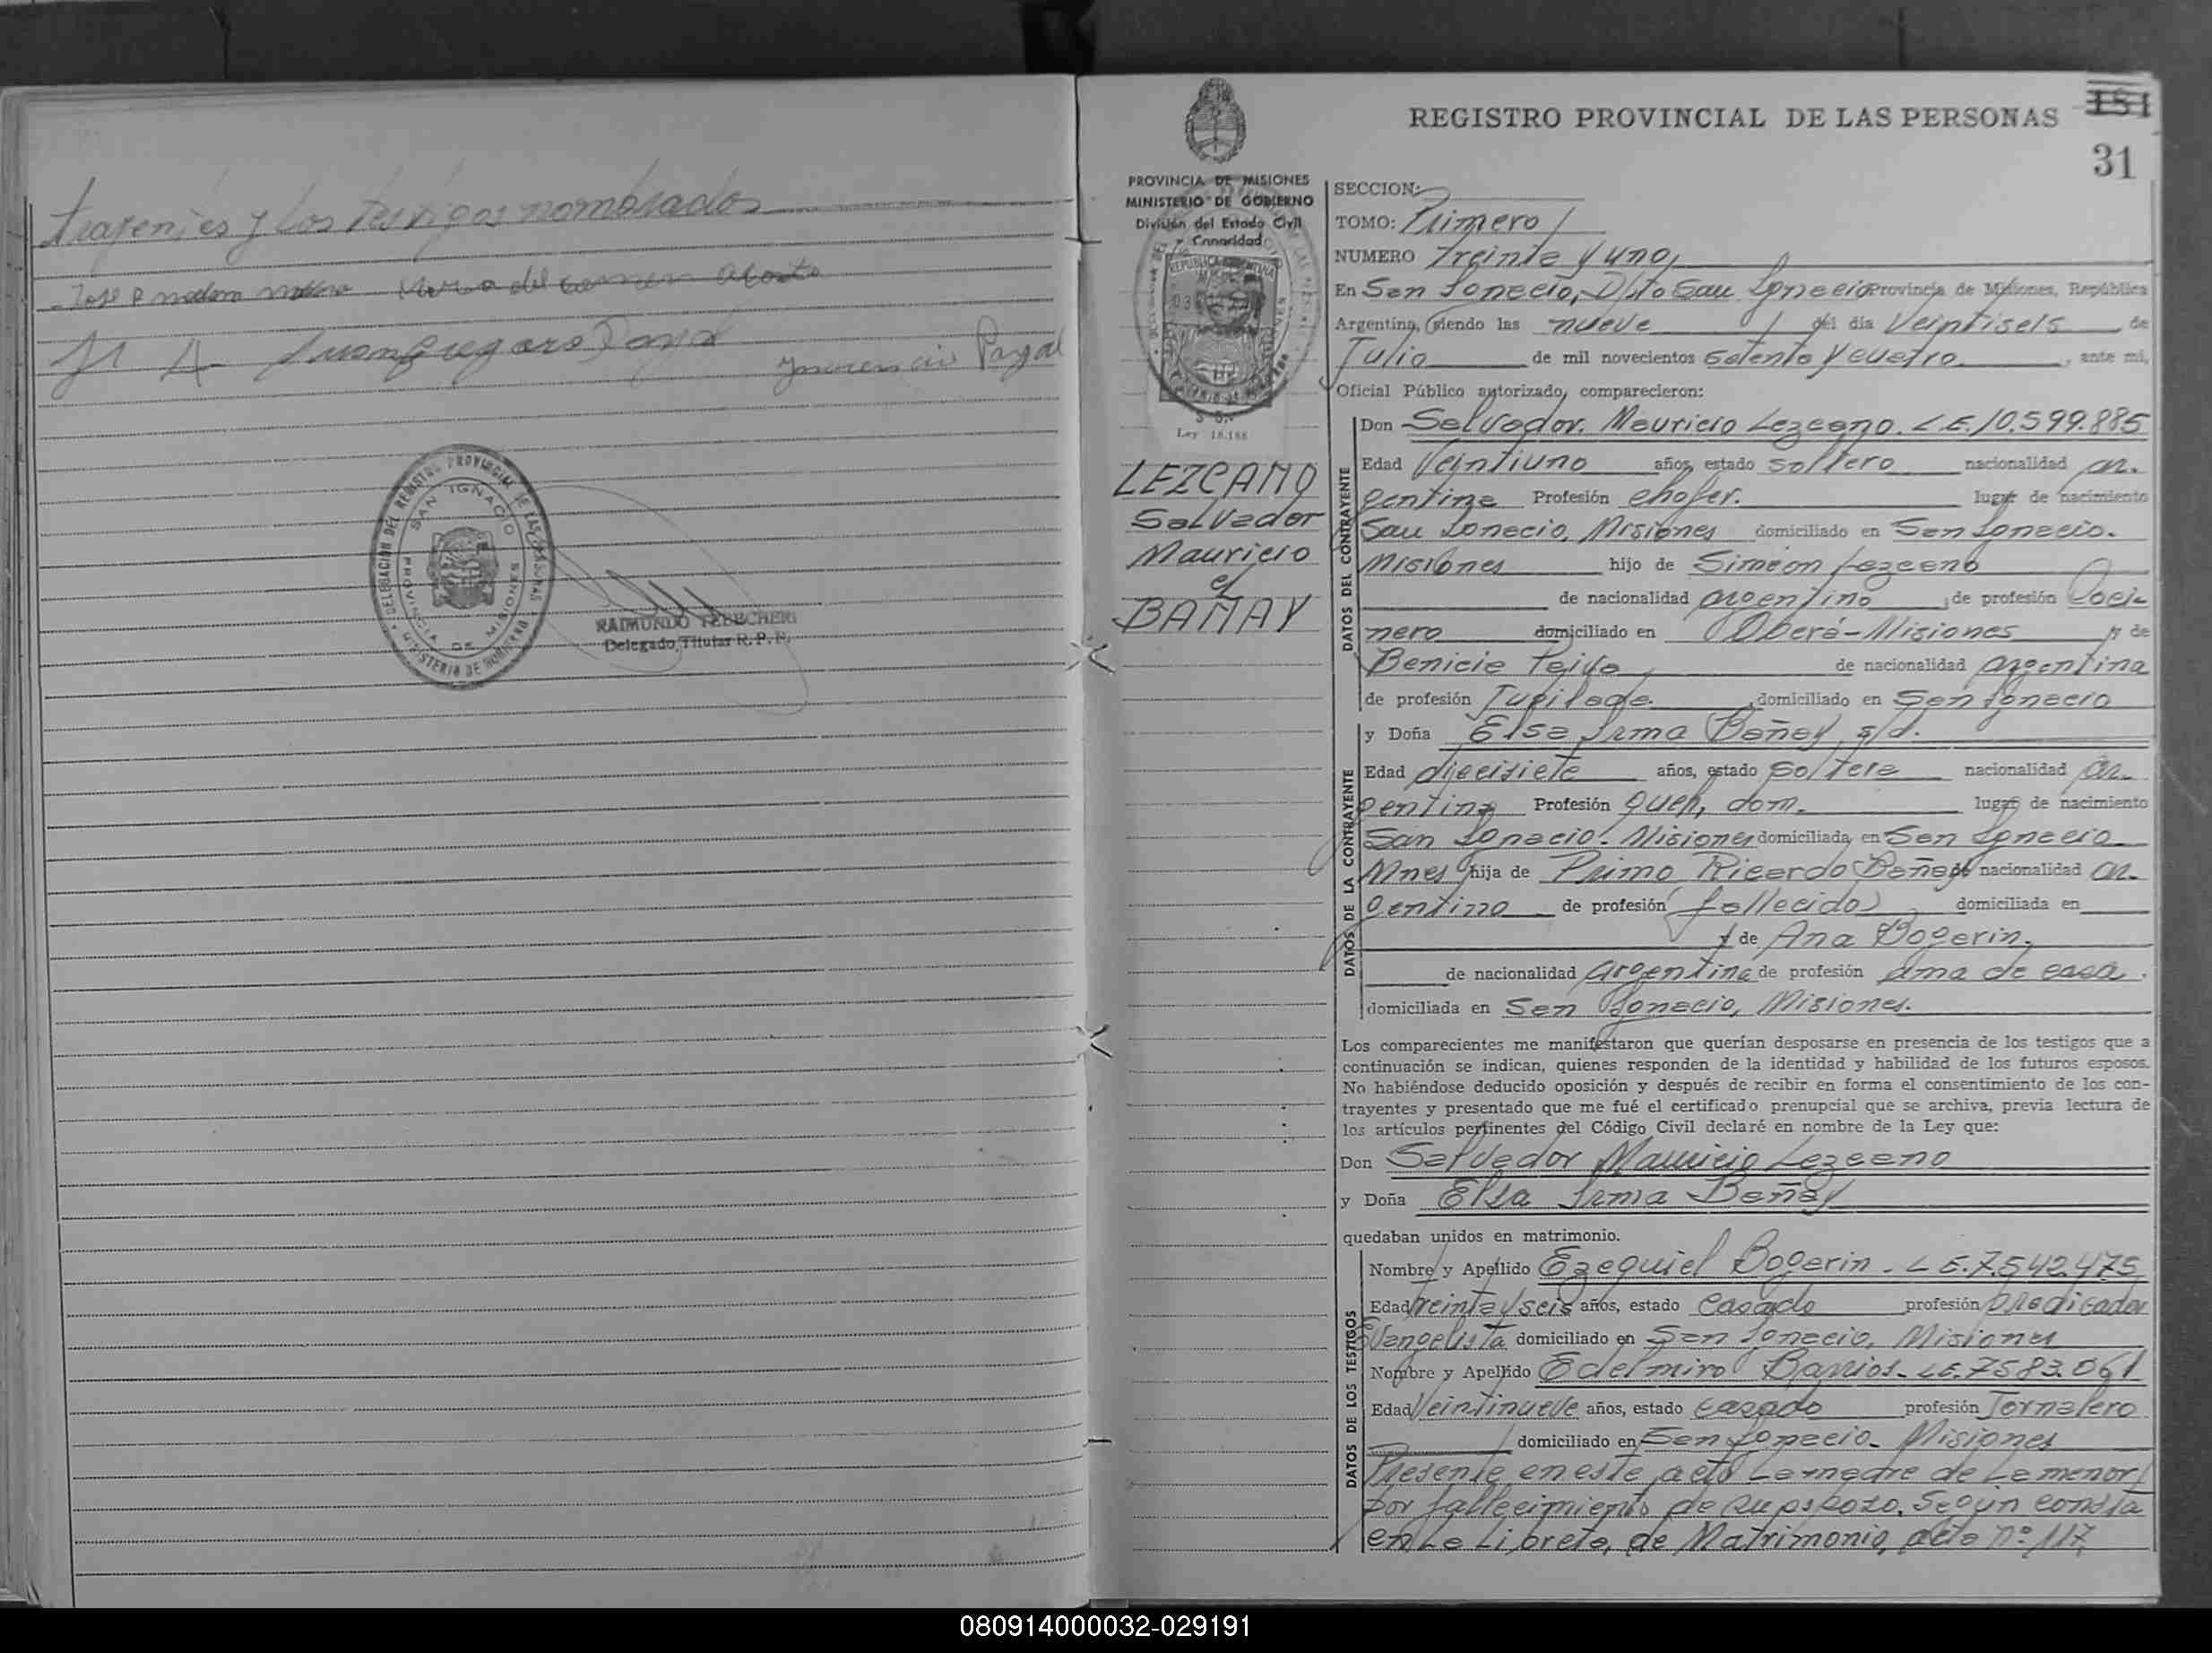 trayentes y Los testigos nombrados
Jose R Maria del Carmen Acosta
Juan Gregorio
RAIMUNDO
Delegado Titular R. P. P.
DELEGACION DEL REGISTRO PROVINCIAL DE LAS PERSONAS
SAN IGNACIO
PROVINCIA DE MISIONES
MINISTERIO DE GOBIERNO
REGISTRO PROVINCIAL DE LAS PERSONAS
151
31
PROVINCIA DE MISIONES
MINISTERIO DE GOBIERNO
División del Estado Civil
y Capacidad
REPUBLICA ARGENTINA
Ley 18.188
LEZCANO
Salvador
Mauricio
c/
BAÑAY
SECCION:
TOMO: Primero
NUMERO Treinta y uno
En San Ignacio, Dpto San Ignacio Provincia de Misiones, República
Argentina, siendo las nueve del día Veintiseis de
Julio de mil novecientos setenta y cuatro, ante mi,
Oficial Público autorizado, comparecieron:
DATOS DEL CONTRAYENTE
Don Salvador Mauricio Lezcano. L.E. 10.599.885
Edad Veintiuno años, estado soltero nacionalidad ar-
gentina Profesión chofer. lugar de nacimiento
San Ignacio, Misiones domiciliado en San Ignacio.
Misiones hijo de Simeon Lezcano
de nacionalidad argentino, de profesión Coci-
nero domiciliado en Oberá-Misiones y de
Benicia Peiva de nacionalidad argentina
de profesión Jubilada. domiciliado en San Ignacio
DATOS DE LA CONTRAYENTE
y Doña Elsa Irma Bañay s/d.
Edad diecisiete años, estado soltera nacionalidad ar-
gentina Profesión queh. dom. lugar de nacimiento
San Ignacio. Misiones domiciliada en San Ignacio
Mnes hija de Primo Ricardo Bañay de nacionalidad ar-
gentino de profesión (fallecido) domiciliada en
y de Ana Bogarin,
de nacionalidad argentina de profesión ama de casa.
domiciliada en San Ignacio, Misiones.
Los comparecientes me manifestaron que querían desposarse en presencia de los testigos que a
continuación se indican, quienes responden de la identidad y habilidad de los futuros esposos.
No habiéndose deducido oposición y después de recibir en forma el consentimiento de los con-
trayentes y presentado que me fué el certificado prenupcial que se archiva, previa lectura de
los artículos pertinentes del Código Civil declaré en nombre de la Ley que:
Don Salvador Mauricio Lezcano
y Doña Elsa Irma Bañay
quedaban unidos en matrimonio.
DATOS DE LOS TESTIGOS
Nombre y Apellido Ezequiel Bogarin - L.E. 7.542.475
Edad treinta y seis años, estado casado profesión predicador
Evangelista domiciliado en San Ignacio, Misiones
Nombre y Apellido Edelmiro Barrios - L.E. 7583.061
Edad Veintinueve años, estado casado profesión Jornalero
domiciliado en San Ignacio - Misiones
Presente en este acto La madre de La menor
por fallecimiento de su esposo, Según consta
en La Libreta de Matrimonio, acta nº 117,
080914000032-029191